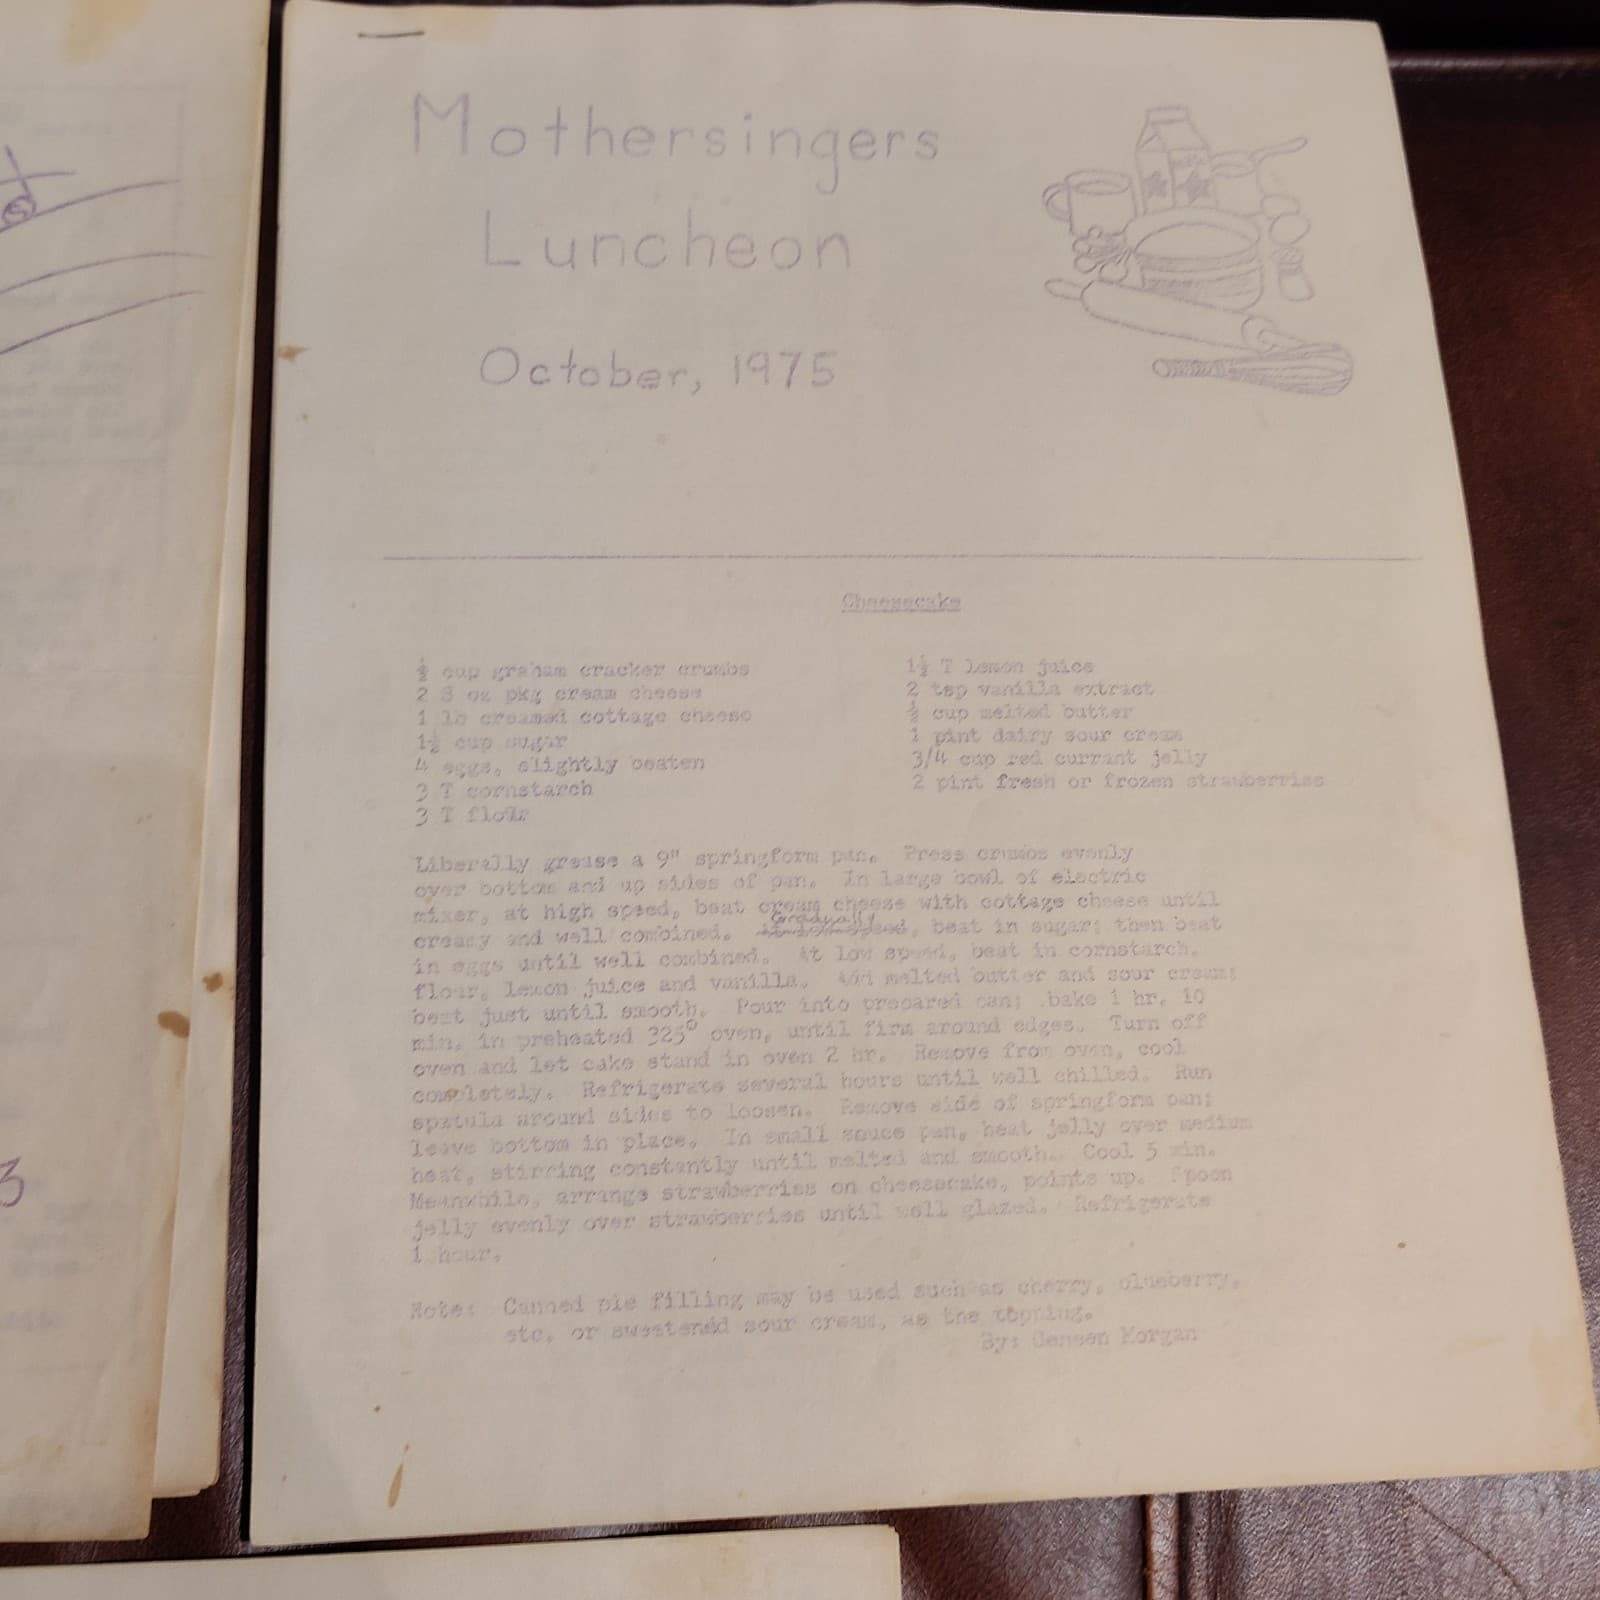 Mothersingers
Luncheon
October, 1975
Cheesecake
½ cup graham cracker crumbs
2 8 oz pkg cream cheese
1 lb creamed cottage cheese
1½ cup sugar
4 eggs, slightly beaten
3 T cornstarch
3 T flour
1½ T lemon juice
2 tsp vanilla extract
½ cup melted butter
1 pint dairy sour cream
3/4 cup red currant jelly
2 pint fresh or frozen strawberries
Liberally grease a 9" springform pan. Press crumbs evenly
over bottom and up sides of pan. In large bowl of electric
mixer, at high speed, beat cream cheese with cottage cheese until
creamy and well combined. Gradually, beat in sugar; then beat
in eggs until well combined. At low speed, beat in cornstarch,
flour, lemon juice and vanilla. Add melted butter and sour cream;
beat just until smooth. Pour into prepared pan; bake 1 hr. 10
min. in preheated 325° oven, until firm around edges. Turn off
oven and let cake stand in oven 2 hr. Remove from oven, cool
completely. Refrigerate several hours until well chilled. Run
spatula around sides to loosen. Remove side of springform pan;
leave bottom in place. In small sauce pan, heat jelly over medium
heat, stirring constantly until melted and smooth. Cool 5 min.
Meanwhile, arrange strawberries on cheesecake, points up. Spoon
jelly evenly over strawberries until well glazed. Refrigerate
1 hour.
Note: Canned pie filling may be used such as cherry, blueberry,
etc. or sweetened sour cream, as the topping.
By: Morgan
3